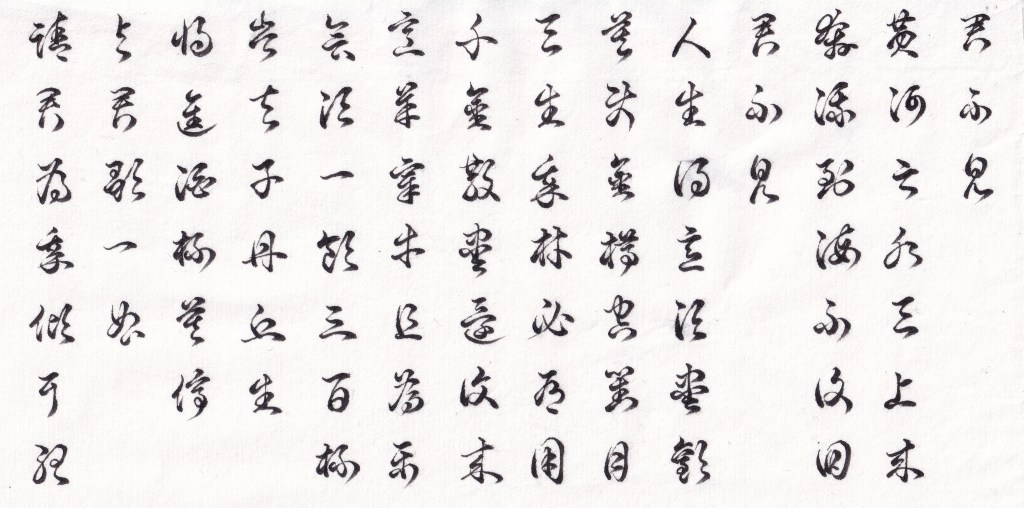 君不見
黃河之水天上來
奔流到海不復回
君不見
人生得意須盡歡
莫使金樽空對月
天生我材必有用
千金散盡還復來
烹羊宰牛且為樂
會須一飲三百杯
岑夫子丹丘生
將進酒杯莫停
與君歌一曲
請君為我傾耳聽